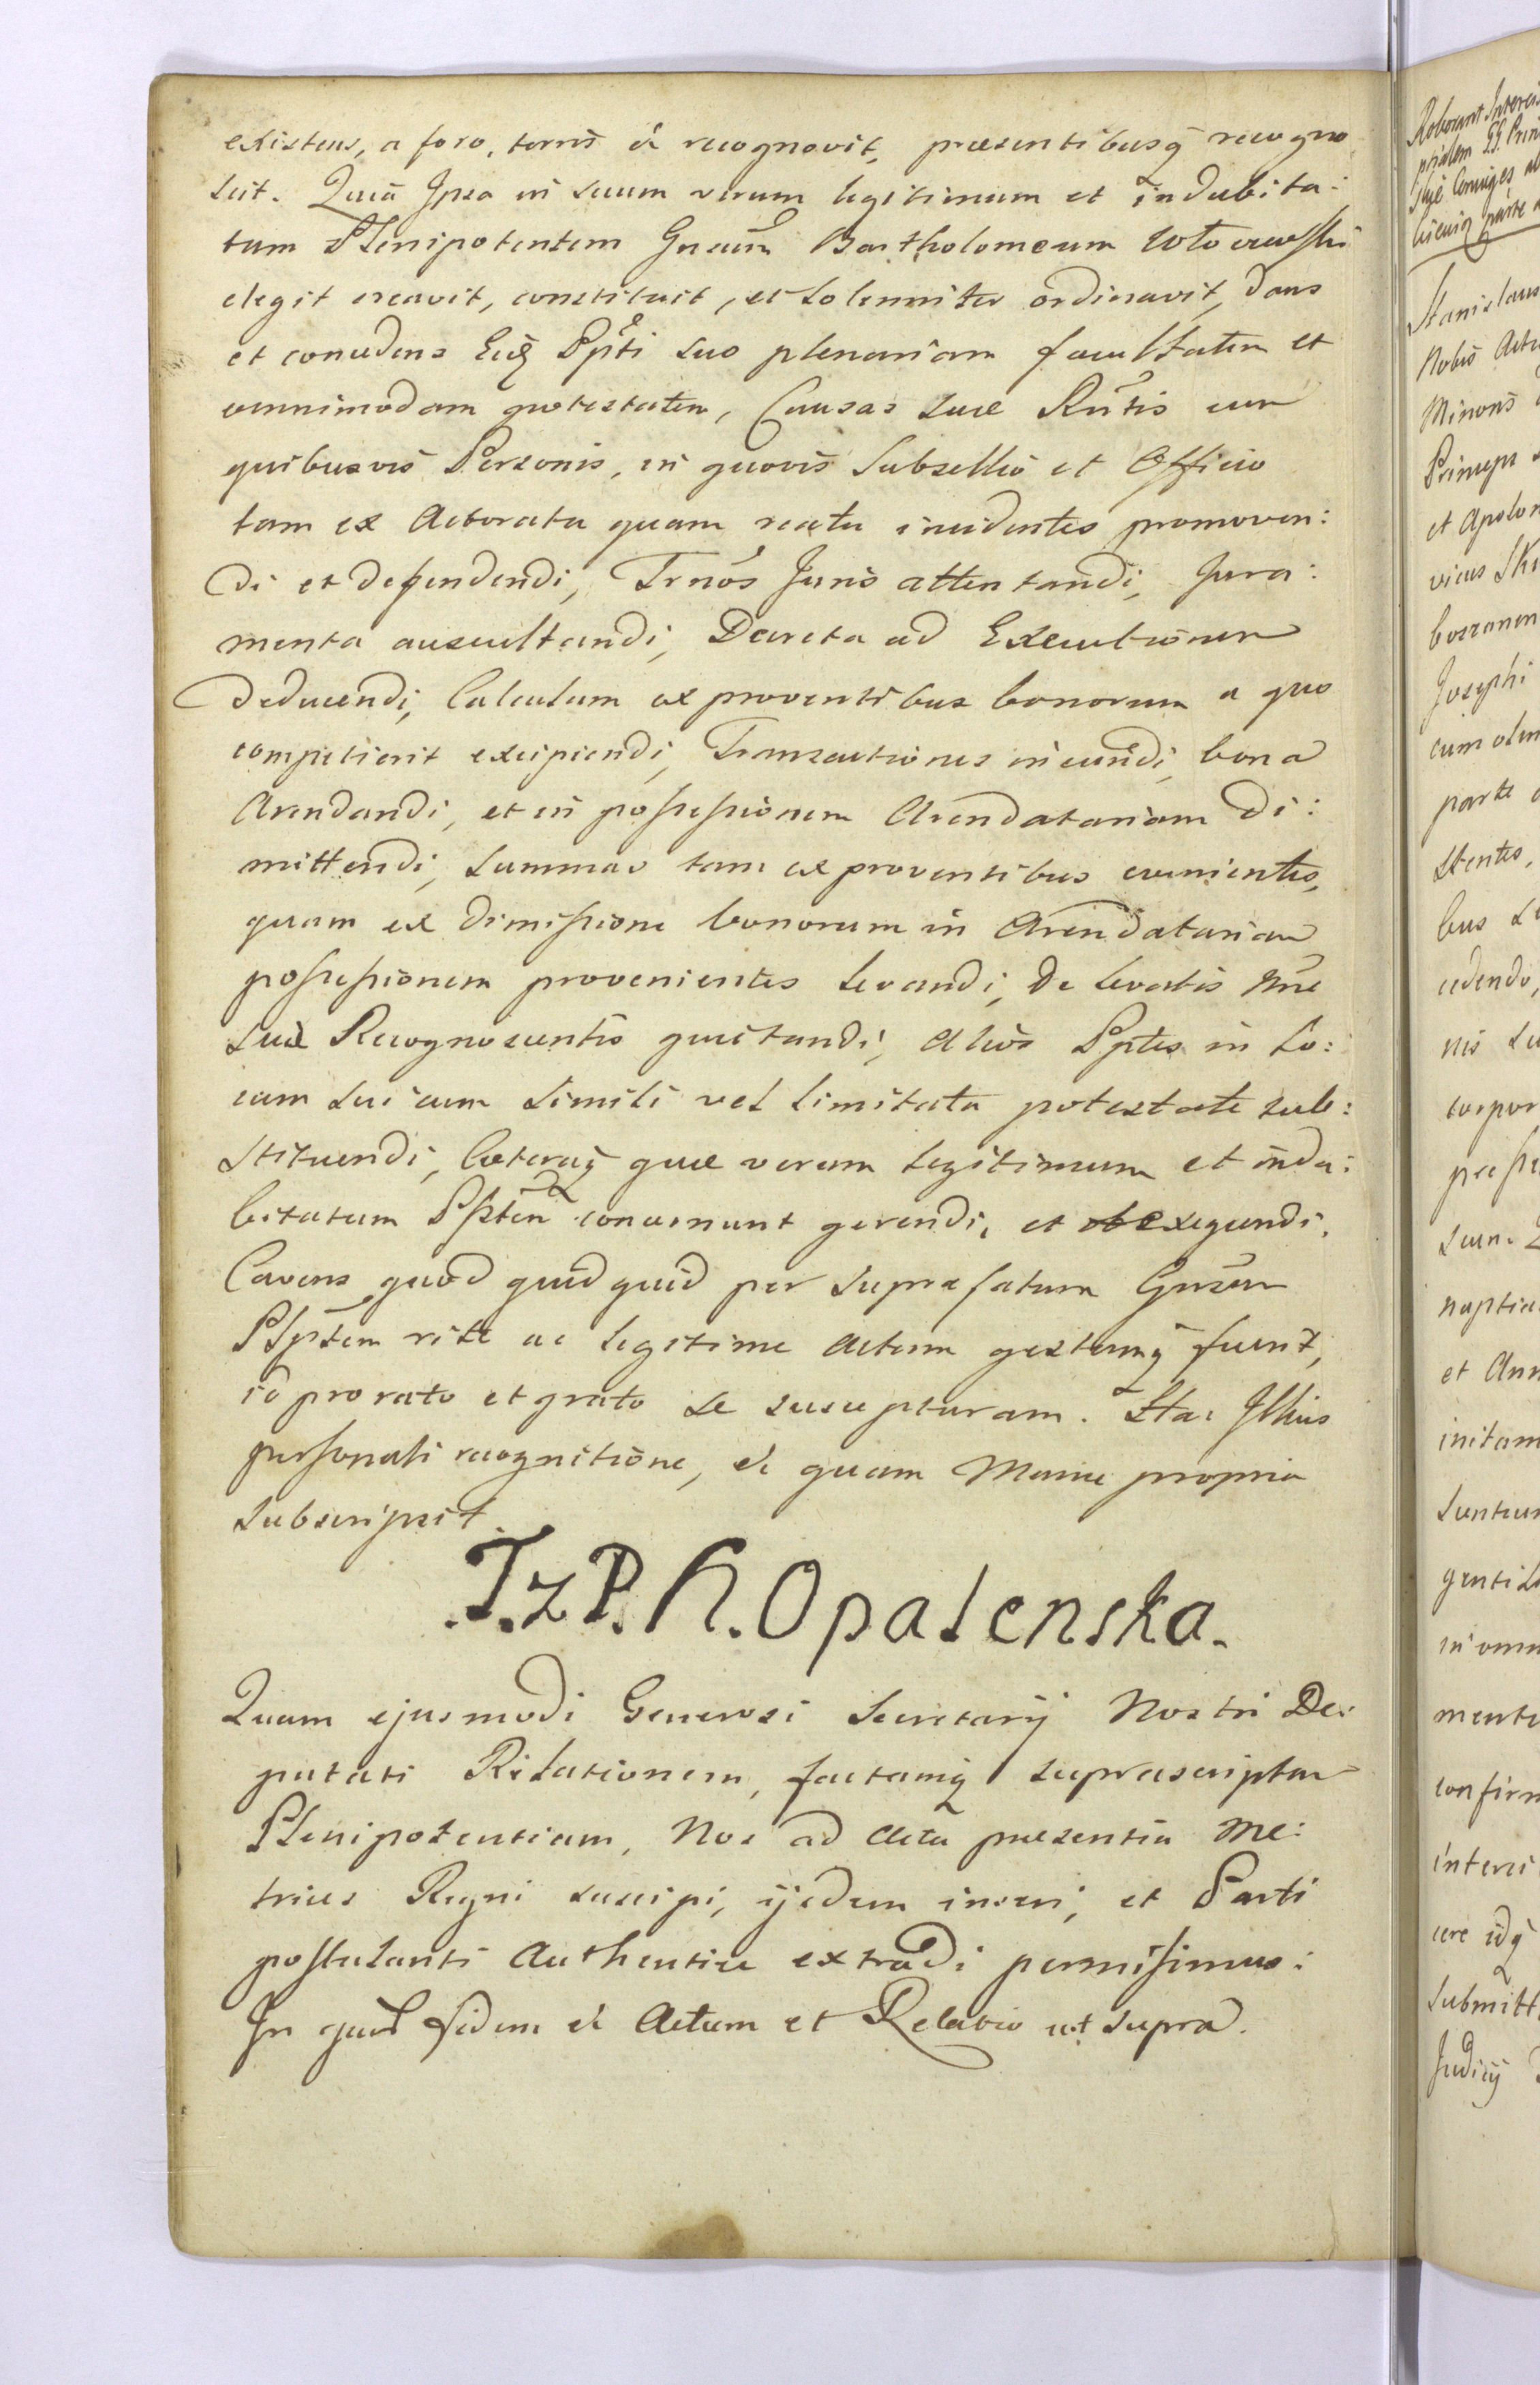 existens, a foro, terris & recognovit, præsentibusq recogno
scit. Quia Ipsa in suum verum legitimum et indubita:
tum Plenipotentem Gneum Bartholomeum
elegit creavit, constituit, et solenniter ordinavit, dans
et concedens Eidq Ppti suo plenariam facultatem et
omnimodam potestatem, Causas suæ Rntis cum
quibusvis Personis, in quovis Subsellio et Officio
tam ex Actoratu quam reatu incidentes promoven:
di et defendendi, Trnos Juris attentandi, Jura:
menta auscultandi, Decreta ad Executionem
deducendi, Calculum ex proventibus bonorum a quo
competierit excipiendi, Transactiones ineundi, bona
Arendandi, et in possessionem Arendatariam di:
mittendi, Summas tam ex proventibus evenientes,
quam ex dimissione bonorum in Arendatariam
possessionem provenientes levandi, De levatis nne
suæ Recognoscentis quietandi, Alios Pptes in lo:
cum sui cum simili vel limitata potestate sub:
stituendi, Cæteraq quæ verum legitimum et indu:
bitatum Plptem concernunt gerendi, et exequendi.
Cavens quod quidquid per suprafatum Gnsum
Plptem rite ac legitime Actum gestumq fuerit,
id pro rato et grato se suscepturam. Stat Illius
personali recognitione, & quam Manu propria
subscripsit
T. z P. H. Opalenska.
Quam ejusmodi Generosi Secretarij Nostri De:
putati Relationem, factamq suprascriptam
Plenipotentiam, Nos ad Acta præsentia Me:
trices Regni suscipi, ijsdem inseri, et Parti
postulanti Authentice extradi permisimus:
In cujus fidem & Actum et Relatio ut supra.
Roborant
Stanislaus
Nobis Actu
Minoris
Princeps
et Apolon
vicus
Josephi
cum olim
parte
stentes,
bus
cedendo,
nis
corpor
nuptia
et Ann
initam
gentil
in omn
mente
confirm
interci
cere idq
submitt
Judicij